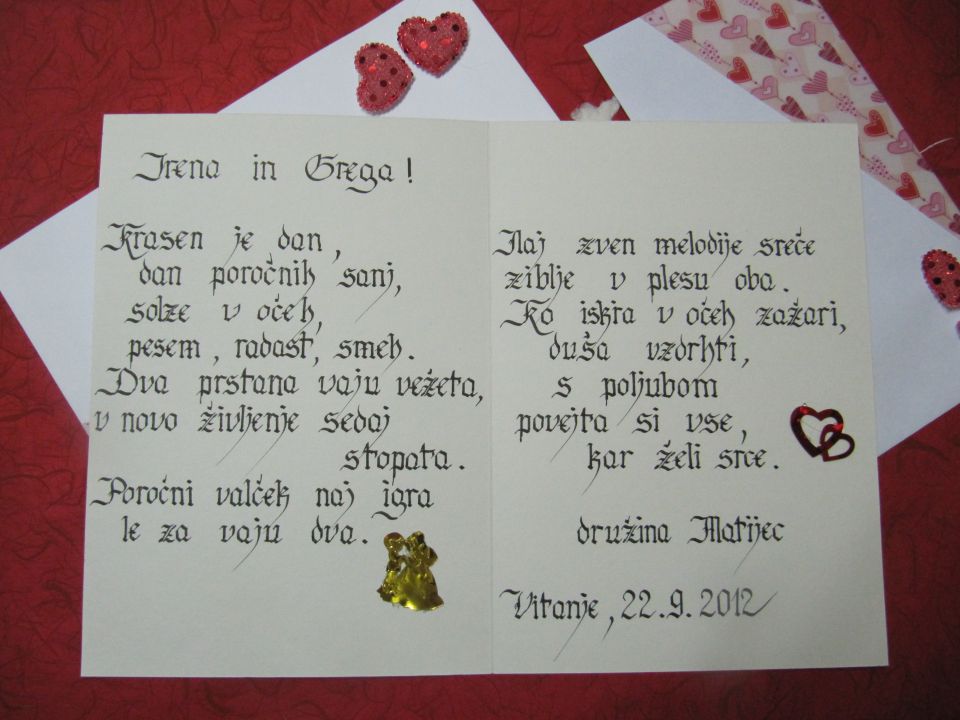 Irena in Grega!
Krasen je dan,
dan poročnih sanj,
solze v očeh,
pesem, radost, smeh.
Dva prstana vaju vežeta,
v novo življenje sedaj
stopata.
Poročni valček naj igra
le za vaju dva.
Naj zven melodije sreče
ziblje v plesu oba.
Ko iskra v očeh zažari,
duša vzdrhti,
s poljubom
povejta si vse,
kar želi srce.
družina Matijec
Vitanje, 22.9.2012